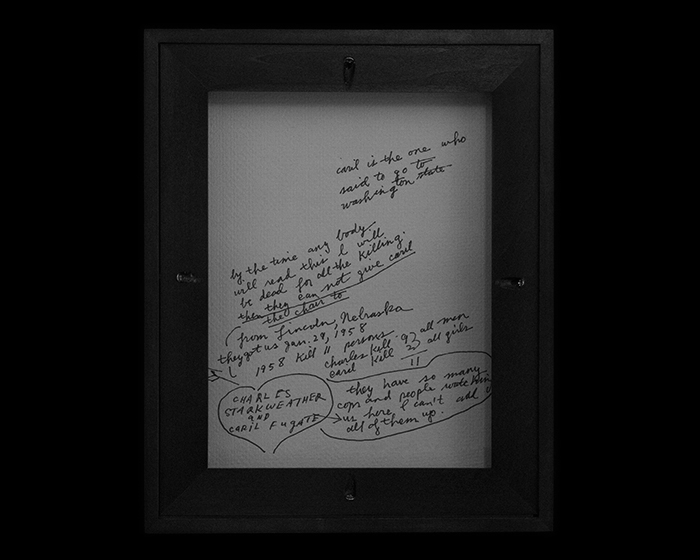 caril is the one who
said to go to
washington state
by the time any body
will read this I will
be dead for all the killing.
then they can not give caril
the chair to
from Lincoln, Nebraska
they got us Jan. 29, 1958
1958 Kill 11 persons
charles kill 9 all men
caril kill 2 all girls
11
they have so many
cops and people
us here, I can't add
all of them up.
CHARLES
STARKWEATHER
AND
CARIL FUGATE